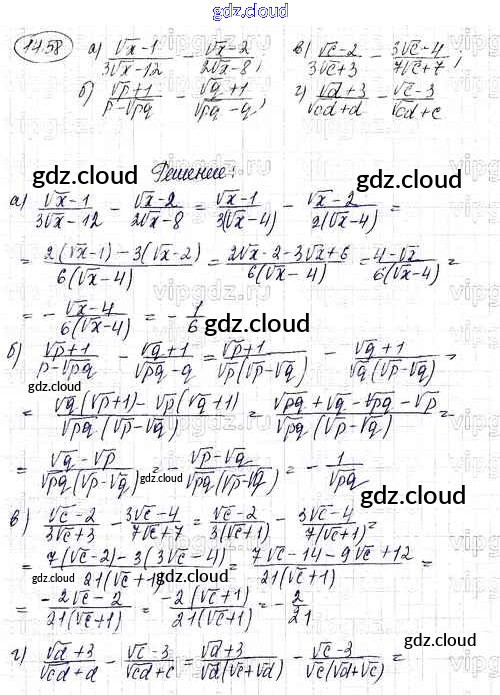 gdz.cloud
14.58 а) (√x-1)/(3√x-12) - (√x-2)/(2√x-8); в) (√c-2)/(3√c+3) - (3√c-4)/(7√c+7);
б) (√p+1)/(p-√pq) - (√q+1)/(√pq-q); г) (√d+3)/(√cd+d) - (√c-3)/(√cd+c)
Решение:
gdz.cloud
а) (√x-1)/(3√x-12) - (√x-2)/(2√x-8) = (√x-1)/(3(√x-4)) - (√x-2)/(2(√x-4)) =
gdz.cloud
= (2(√x-1)-3(√x-2))/(6(√x-4)) = (2√x-2-3√x+6)/(6(√x-4)) = (4-√x)/(6(√x-4)) =
= - (√x-4)/(6(√x-4)) = - 1/6
gdz.cloud
б) (√p+1)/(p-√pq) - (√q+1)/(√pq-q) = (√p+1)/(√p(√p-√q)) - (√q+1)/(√q(√p-√q)) =
gdz.cloud
= (√q(√p+1)-√p(√q+1))/(√pq(√p-√q)) = (√pq+√q-√pq-√p)/(√pq(√p-√q)) =
= (√q-√p)/(√pq(√p-√q)) = - (√p-√q)/(√pq(√p-√q)) = - 1/√pq
gdz.cloud
gdz.cloud
gdz.cloud
в) (√c-2)/(3√c+3) - (3√c-4)/(7√c+7) = (√c-2)/(3(√c+1)) - (3√c-4)/(7(√c+1)) =
= (7(√c-2)-3(3√c-4))/(21(√c+1)) = (7√c-14-9√c+12)/(21(√c+1)) =
gdz.cloud
= (-2√c-2)/(21(√c+1)) = (-2(√c+1))/(21(√c+1)) = - 2/21
gdz.cloud
г) (√d+3)/(√cd+d) - (√c-3)/(√cd+c) = (√d+3)/(√d(√c+√d)) - (√c-3)/(√c(√d+√c)) =
gdz.cloud